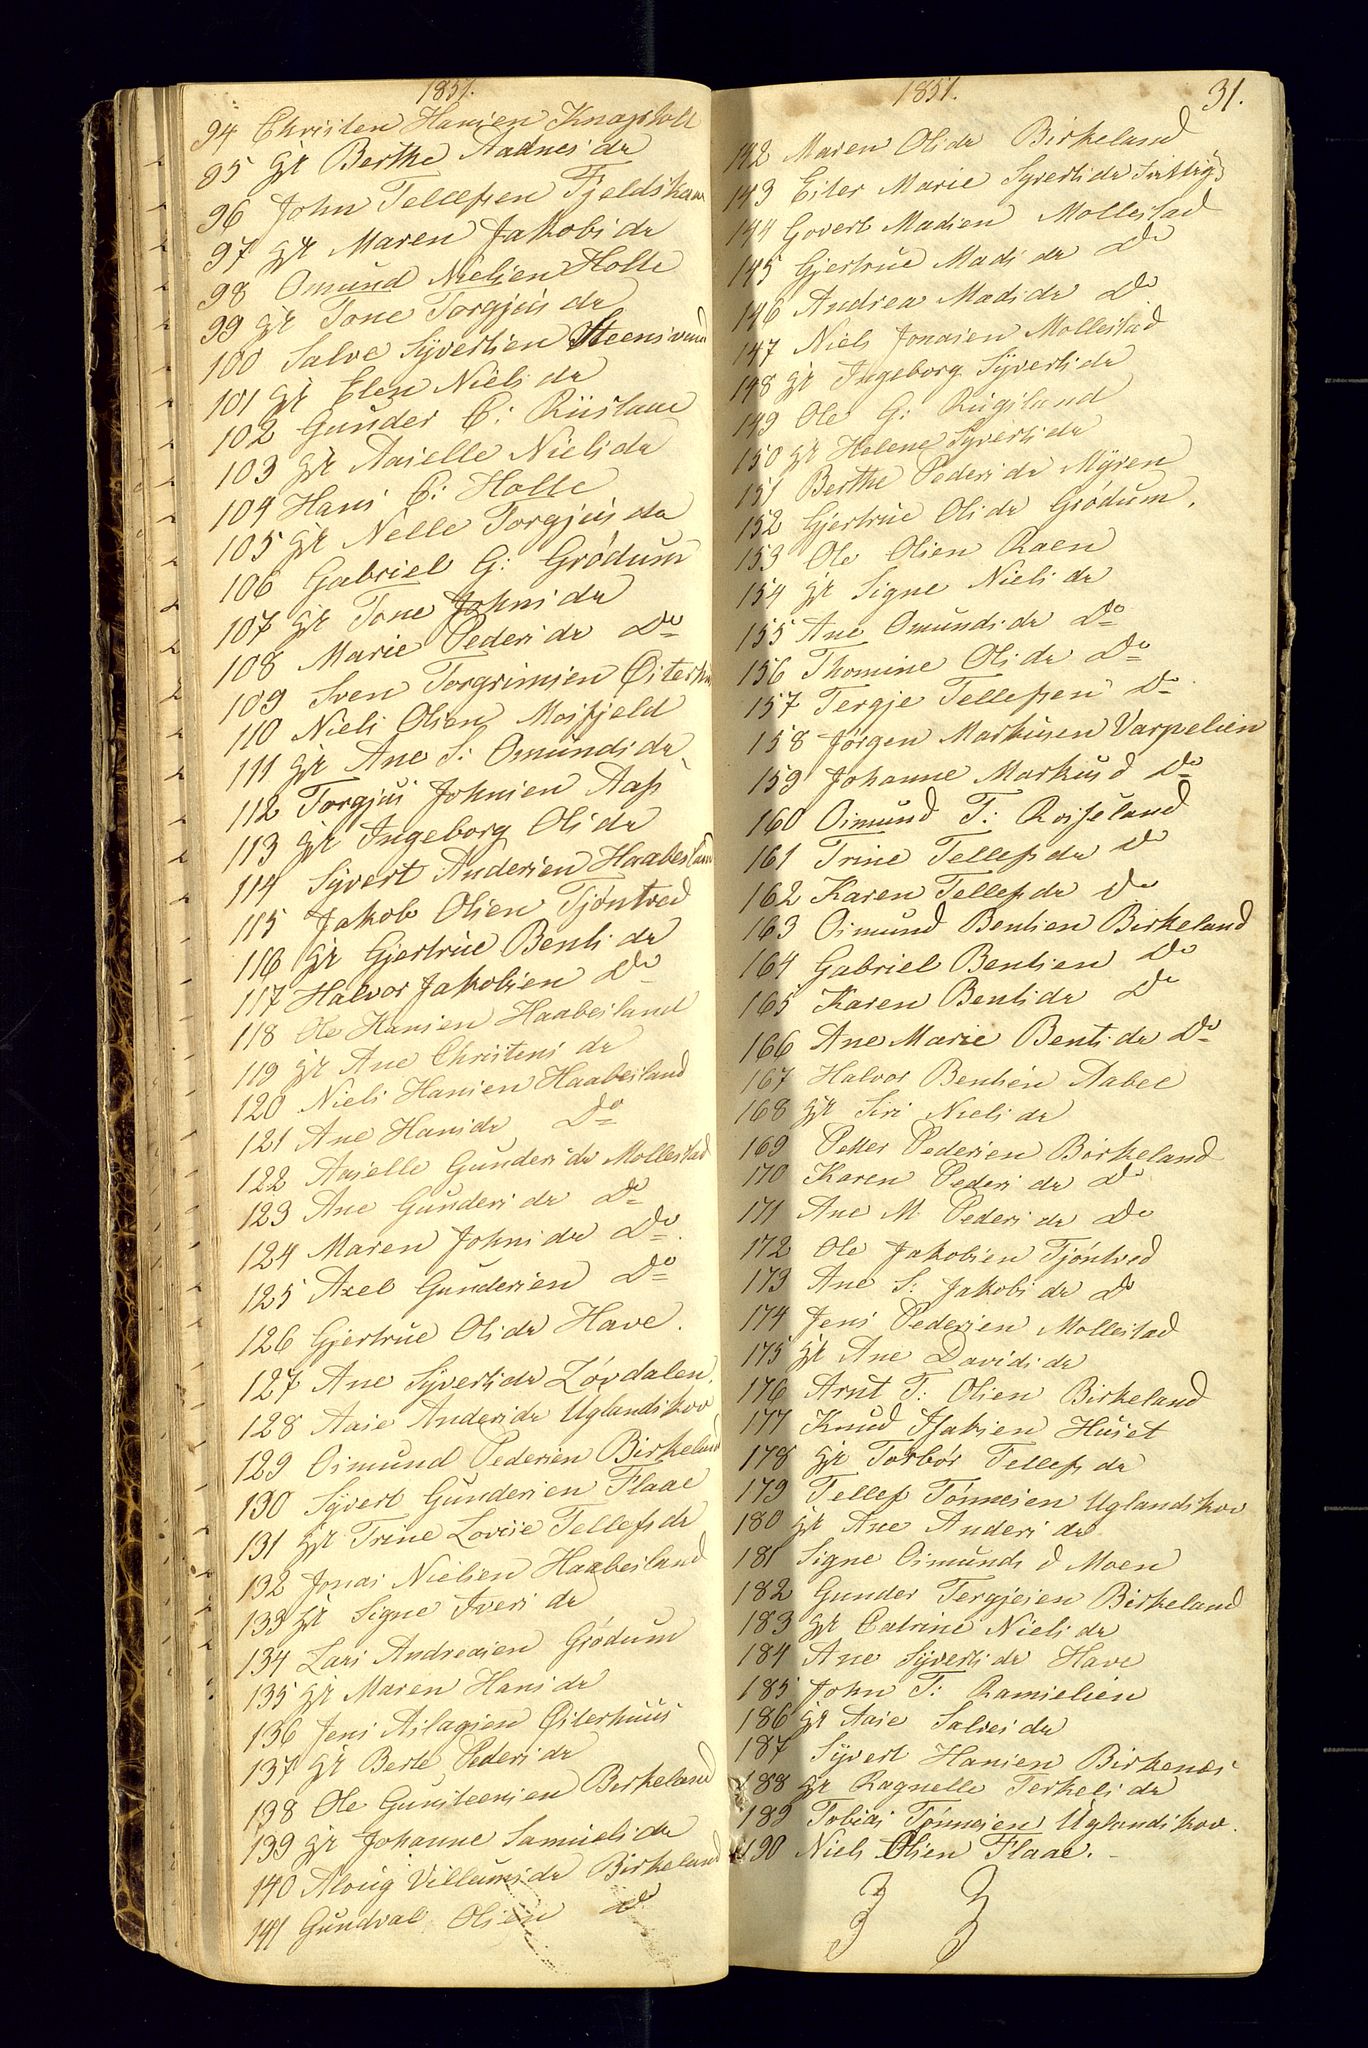 1851.
94 Christen Hansen Knagsholt
95 Gr Berthe Aadnesda
96 John Tellefsen Fjeldskaar
97 gr Maren Jakobsda
98 Omund Nielsen Holle
99 gr Tone Torgjusda
100 Salve Syvertsen Steensvand
101 gr Elen Nielsda
102 Gunder C: Rüslane
103 gr Aasille Nielsda
104 Hans C: Holle
105 gr Nelle Torgjusda
106 Gabriel G: Grödum
107 gr Tone Johnsda
108 Marie Pedersda Do
109 Sven Torgrimsen
110 Niels Olsen Mosfjeld
111 gr Ane S: Omundsda
112 Torgjus Johnsen Aas
113 gr Ingeborg Olsda
114 Syvert Andersen Haabesland
115 Jakob Olsen Tjöntved
116 gr Gjertrue Bentsda
117 Halvor Jakobsen Do
118 Ole Hansen Haabesland
119 gr Ane Christensda
120 Niels Hansen Haabesland
121 Ane Hansda Do
122 Assille Gundersda Mollestad
123 Ane Gundersda Do
124 Maren Johnsda Do
125 Axel Gundersen Do
126 Gjertrue Olsda Have.
127 Ane Syvertsda Lövdalen.
128 Aase Andersda Uglandskov
129 Osmund Pedersen Birkeland
130 Syvert Gundersen Flaae
131 gr Trine Lovise Tellefsda
132 Jonas Nielsen Haabesland
133 gr Signe Iversda
134 Lars Andreasen Grödum
135 gr Maren Hansda
136 Jens Aslagsen Østerhuus
137 gr Berte Pedersda
138 Ole Gunsteensen Birkeland
139 gr Johanne Samuelsda
140 Aloug Villumsda Birkeland
141 Gundval Olsen Do
1851. 31.
142 Maren Olsda Birkeland
143 Ester Marie Syvertsda
144 Govert Madsen Mollestad
145 Gjertrue Madsda Do
146 Andrea Madsda Do
147 Niels Jonasen Mollestad
148 gr Ingeborg Syvertsda
149 Ole G: Rugsland
150 gr Helene Syvertsda
151 Berthe Pedersda Myren
152 Gjertrue Olsda Grödum.
153 Ole Olsen Raen
154 gr Signe Nielsda
155 Ane Omundsda Do
156 Thomine Olsda Do
157 Tergje Tellefsen Do
158 Jörgen Markusen Varpelien
159 Johanne Markusd Do
160 Osmund T: Rosseland
161 Trine Tellefsda Do
162 Karen Tellefsda Do
163 Osmund Bentsen Birkeland
164 Gabriel Bentsen Do
165 Karen Bentsda Do
166 Ane Marie Bentsda Do
167 Halvor Bentsen Aabel
168 gr Siri Nielsda
169 Petter Pedersen Birkeland
170 Karen Pedersda Do
171 Ane M. Pedersda Do
172 Ole Jakobsen Tjöntved
173 Ane S: Jakobsda Do
174 Jens Pedersen Mollestad
175 gr Ane Davidsda
176 Arnt T: Olsen Birkeland
177 Knud Isaksen Huset
178 gr Torbör Tellefsda
179 Tellef Tönnesen Uglandskov
180 gr Ane Andersda
181 Signe Osmundsd Moen
182 Gunder Tergjesen Birkeland
183 gr Catrine Nielsda
184 Ane Syvertsda Have
185 John T: Ramselien
186 gr Aase Salvesda
187 Syvert Hansen Birkenes
188 gr Ragnelle Terkelsda
189 Tobias Tönnesen Uglandskov.
190 Niels Olsen Flaae.